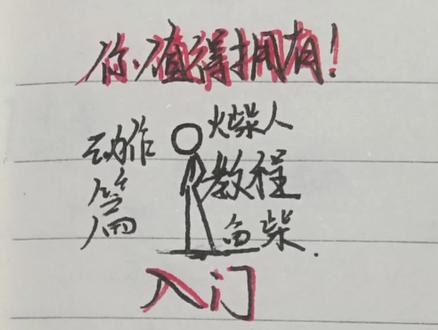 你值得拥有!
动作篇
火柴人
教程
白柴.
入门